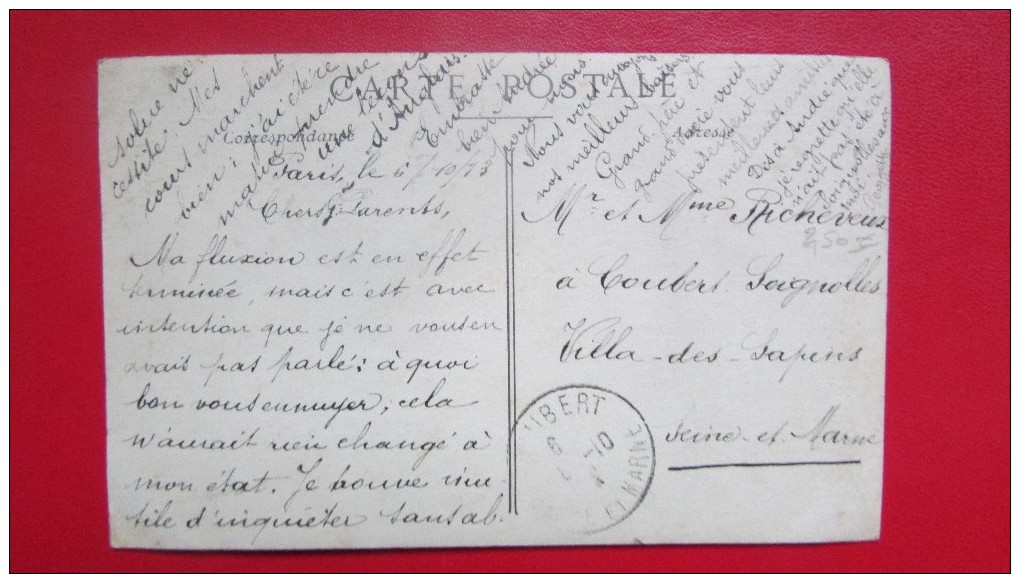 CARTE POSTALE
Correspondance
Adresse
Paris, le 6/10/13
Chers Parents,
Ma fluxion est en effet
terminée, mais c'est avec
intention que je ne vous en
avais pas parlé; à quoi
bon vous ennuyer, cela
n'aurait rien changé à
mon état. Je trouve inu-
tile d'inquiéter sans ab-
solue né-
cessité. Mes
cours marchent
bien j'ai été ce
matin prendre
un leçons
d'Anglais.
Embrasse
bien Andrée
pour nous.
Nous vous envoyons
nos meilleurs baisers
Grand-père et
grand-mère vous
présentent leurs
meilleures amitiés
Dis à Andrée que
je regrette qu'elle
n'ait pas été à
Soignolles avec
moi
Mr et Mme Richeveux
à Coubert Soignolles
Villa-des-Sapins
Seine-et-Marne
UBERT
6 -10
ET MARNE